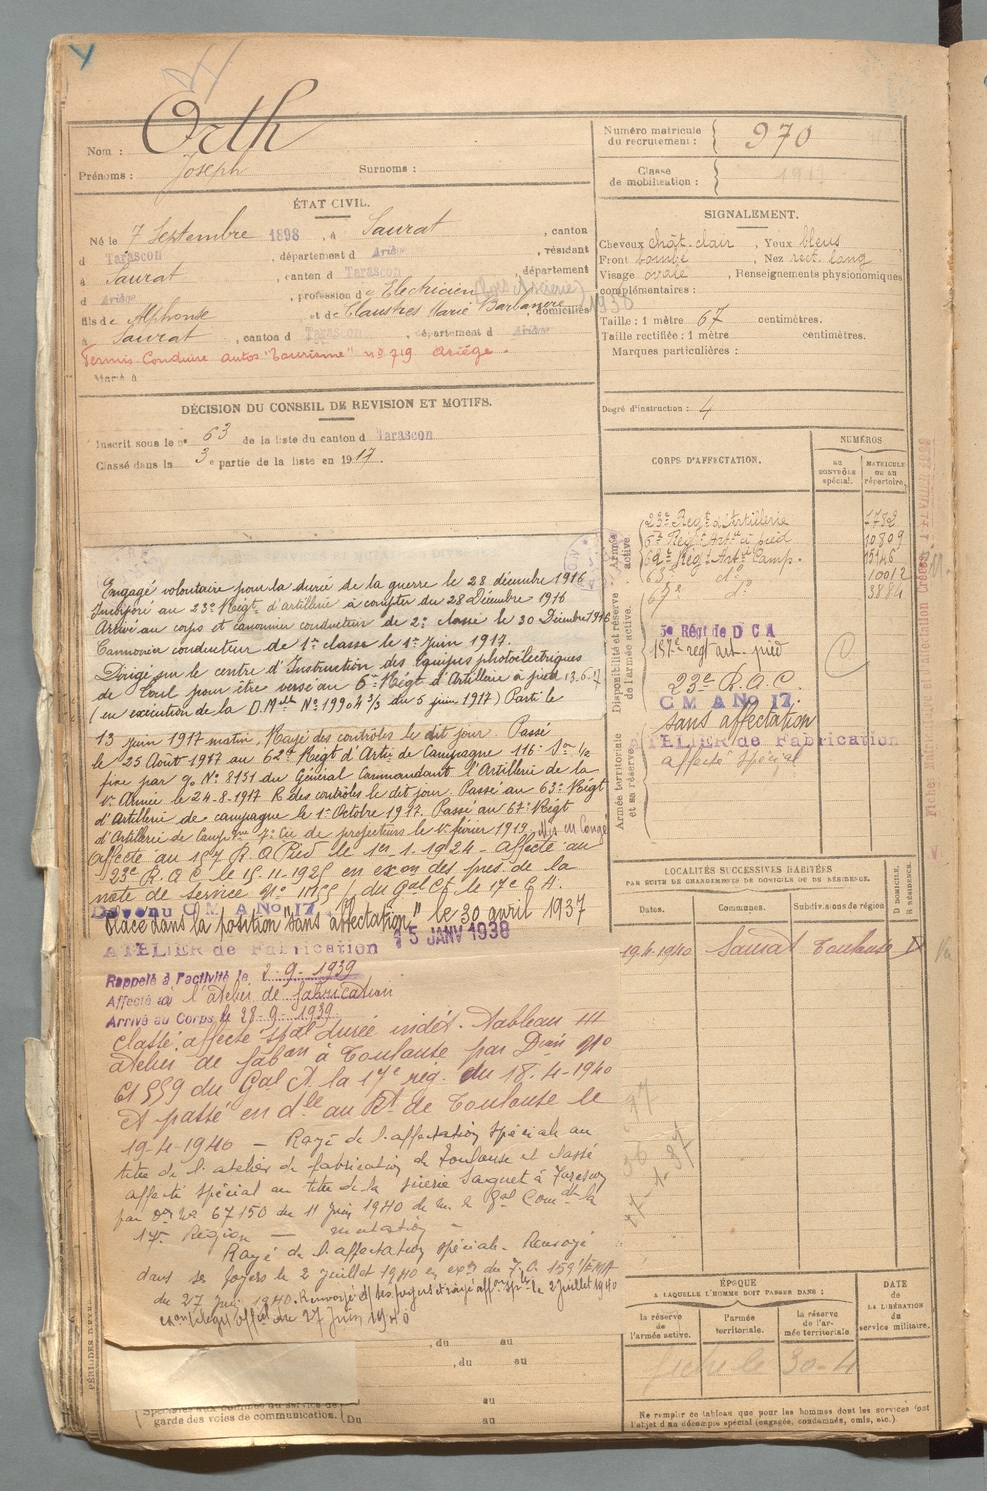 Nom : Orth
Prénoms : Joseph Surnoms :
ÉTAT CIVIL.
Né le 7 Septembre 1898, à Saurat, canton
d Tarascon, département d Ariège, résidant
à Saurat, canton d Tarascon, département
d Ariège, profession d Electricien
fils de Alphonse et de Claustres Marie Barbanere, domiciliés
à Saurat, canton d Tarascon, département d Ariège
Permis Conduire autos "Tourisme" no 719 Ariège.
Marié à
DÉCISION DU CONSEIL DE REVISION ET MOTIFS.
Inscrit sous le no 63 de la liste du canton d Tarascon
Classé dans la 3e partie de la liste en 1917.
Engagé volontaire pour la durée de la guerre le 28 décembre 1916
Incorporé au 23e Régt d'artillerie à compter du 28 Décembre 1916
Arrivé au corps et canonnier conducteur de 2e classe le 30 Décembre 1916
Cannonier conducteur de 1re classe le 1er Juin 1917.
Dirigé sur le centre d'Instruction des Equipes photoélectriques
de Toul pour être versé au 6e Régt d'Artillerie à pied 13.6.17
(en exécution de la D.Mlle No 19904 3/3 du 5 juin 1917) Parti le
13 Juin 1917 matin, Rayé des controles le dit jour. Passé
le 25 Août 1917 au 62e Régt d'Artie de Campagne 116e Son 1/2
fixe par No 8131 du Général Commandant l'Artillerie de la
Armée le 24-8-1917 R des contrôles le dit jour. Passé au 63e Régt
d'Artillerie de campagne le 1er Octobre 1917. Passé au 67e Régt
d'Artillerie de Campgne Cie de projecteurs le 1er février 1919. Mis en Congé
Affecté au 157 R.A Pied le 1er 1.1924 - affecté au
23e R.A.C. le 15.11.1925 en exon des pres. de la
note de service No du Gal Ct le 17e C.A.
Devenu C M A No 17
Placé dans la position "sans affectation" le 30 avril 1937
ATELIER de Fabrication 15 JANV 1938
Rappelé à l'activité le 2-9-1939
Affecté à l'atelier de fabrication
Arrivé au Corps le 28-9-1939
classé affecté spal durée indét. Tableau III
atelier de faban à Toulouse par Don No
61559 du Gal Ct la 17e rég. du 18-4-1940
Et passé en dle au Bt de Toulouse le
19-4-1940 — Rayé de l'affectation spéciale au
titre de l'atelier de fabrication de Toulouse et classé
affecté spécial au titre de la Saquet à Tarascon
par Don No 67150 du 11 Juin 1940 de M. le Gal Comdt la
17e Région — mutation —
Rayé de l'affectation spéciale - Renvoyé
dans ses foyers le 2 juillet 1940 en exon du
du 27 Juin 1940. Renvoyé ds ses foyers et rayé affon splle le 2 juillet 1940
27 Juin 1940
, du au
, du au
au
garde des voies de communication. Du au
PÉRIODES D'EXE
Numéro matricule du recrutement : 970
Classe de mobilisation :
SIGNALEMENT.
Cheveux chât-clair, Yeux bleus
Front bombé, Nez rect. long
Visage ovale, Renseignements physionomiques
complémentaires :
Taille : 1 mètre 67 centimètres.
Taille rectifiée : 1 mètre centimètres.
Marques particulières :
Degré d'instruction : 4
CORPS D'AFFECTATION.
NUMÉROS
AU CONTRÔLE spécial.
MATRICULE OU AU répertoire.
Armée active
23e Regt d'Artillerie 1782
6e Régt Artie à pied 10809
62e Régt Artie Camp. 15146
63e do 10012
67e do 3884
Disponibilité et réserve de l'armée active.
5e Régt de D C A
157e regt art. pied
23e R.A.C.
C M A No 17.
sans affectation
Armée territoriale et sa réserve
ATELIER de Fabrication
affecté spécial
LOCALITÉS SUCCESSIVES HABITÉES
PAR SUITE DE CHANGEMENTS DE DOMICILE OU DE RÉSIDENCE.
Dates. Communes. Subdivisions de région D DOMICILE. R RÉSIDENCE.
19.4.1940 Saurat Toulouse D
ÉPOQUE
A LAQUELLE L'HOMME DOIT PASSER DANS :
la réserve de l'armée active.
l'armée territoriale.
la réserve de l'armée territoriale.
DATE DE LA LIBÉRATION du service militaire.
fiche le 30-4
Ne remplir ce tableau que pour les hommes dont les services font
l'objet d'un décompte spécial (engagés, condamnés, omis, etc.)